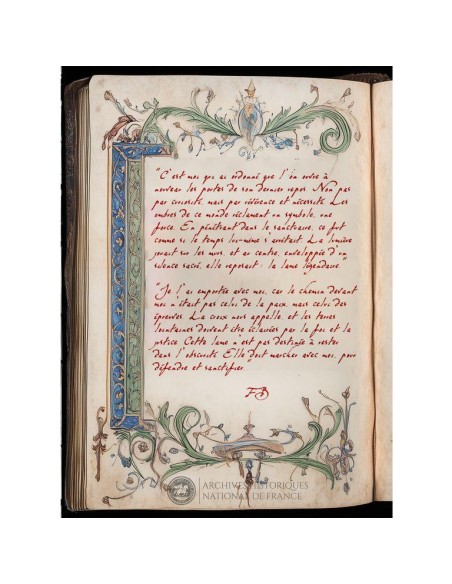 "C'est moi qui ai ordonné que l'on ouvre à
nouveau les portes de son dernier repos. Non pas
par curiosité, mais par révérence et nécessité. Les
ombres de ce monde réclament un symbole, une
force. En pénétrant dans le sanctuaire, ce fut
comme si le temps lui-même s'arrêtait. La lumière
jouait sur les murs, et au centre, enveloppée d'un
silence sacré, elle reposait : la lame légendaire"
"Je l'ai emportée avec moi, car le chemin devant
moi n'était pas celui de la paix, mais celui des
épreuves. La croix nous appelle, et les terres
lointaines doivent être éclairées par la foi et la
justice. Cette lame n'est pas destinée à rester
dans l'obscurité. Elle doit marcher avec moi, pour
défendre et sanctifier.
FB
ARCHIVES HISTORIQUES
NATIONAL DE FRANCE